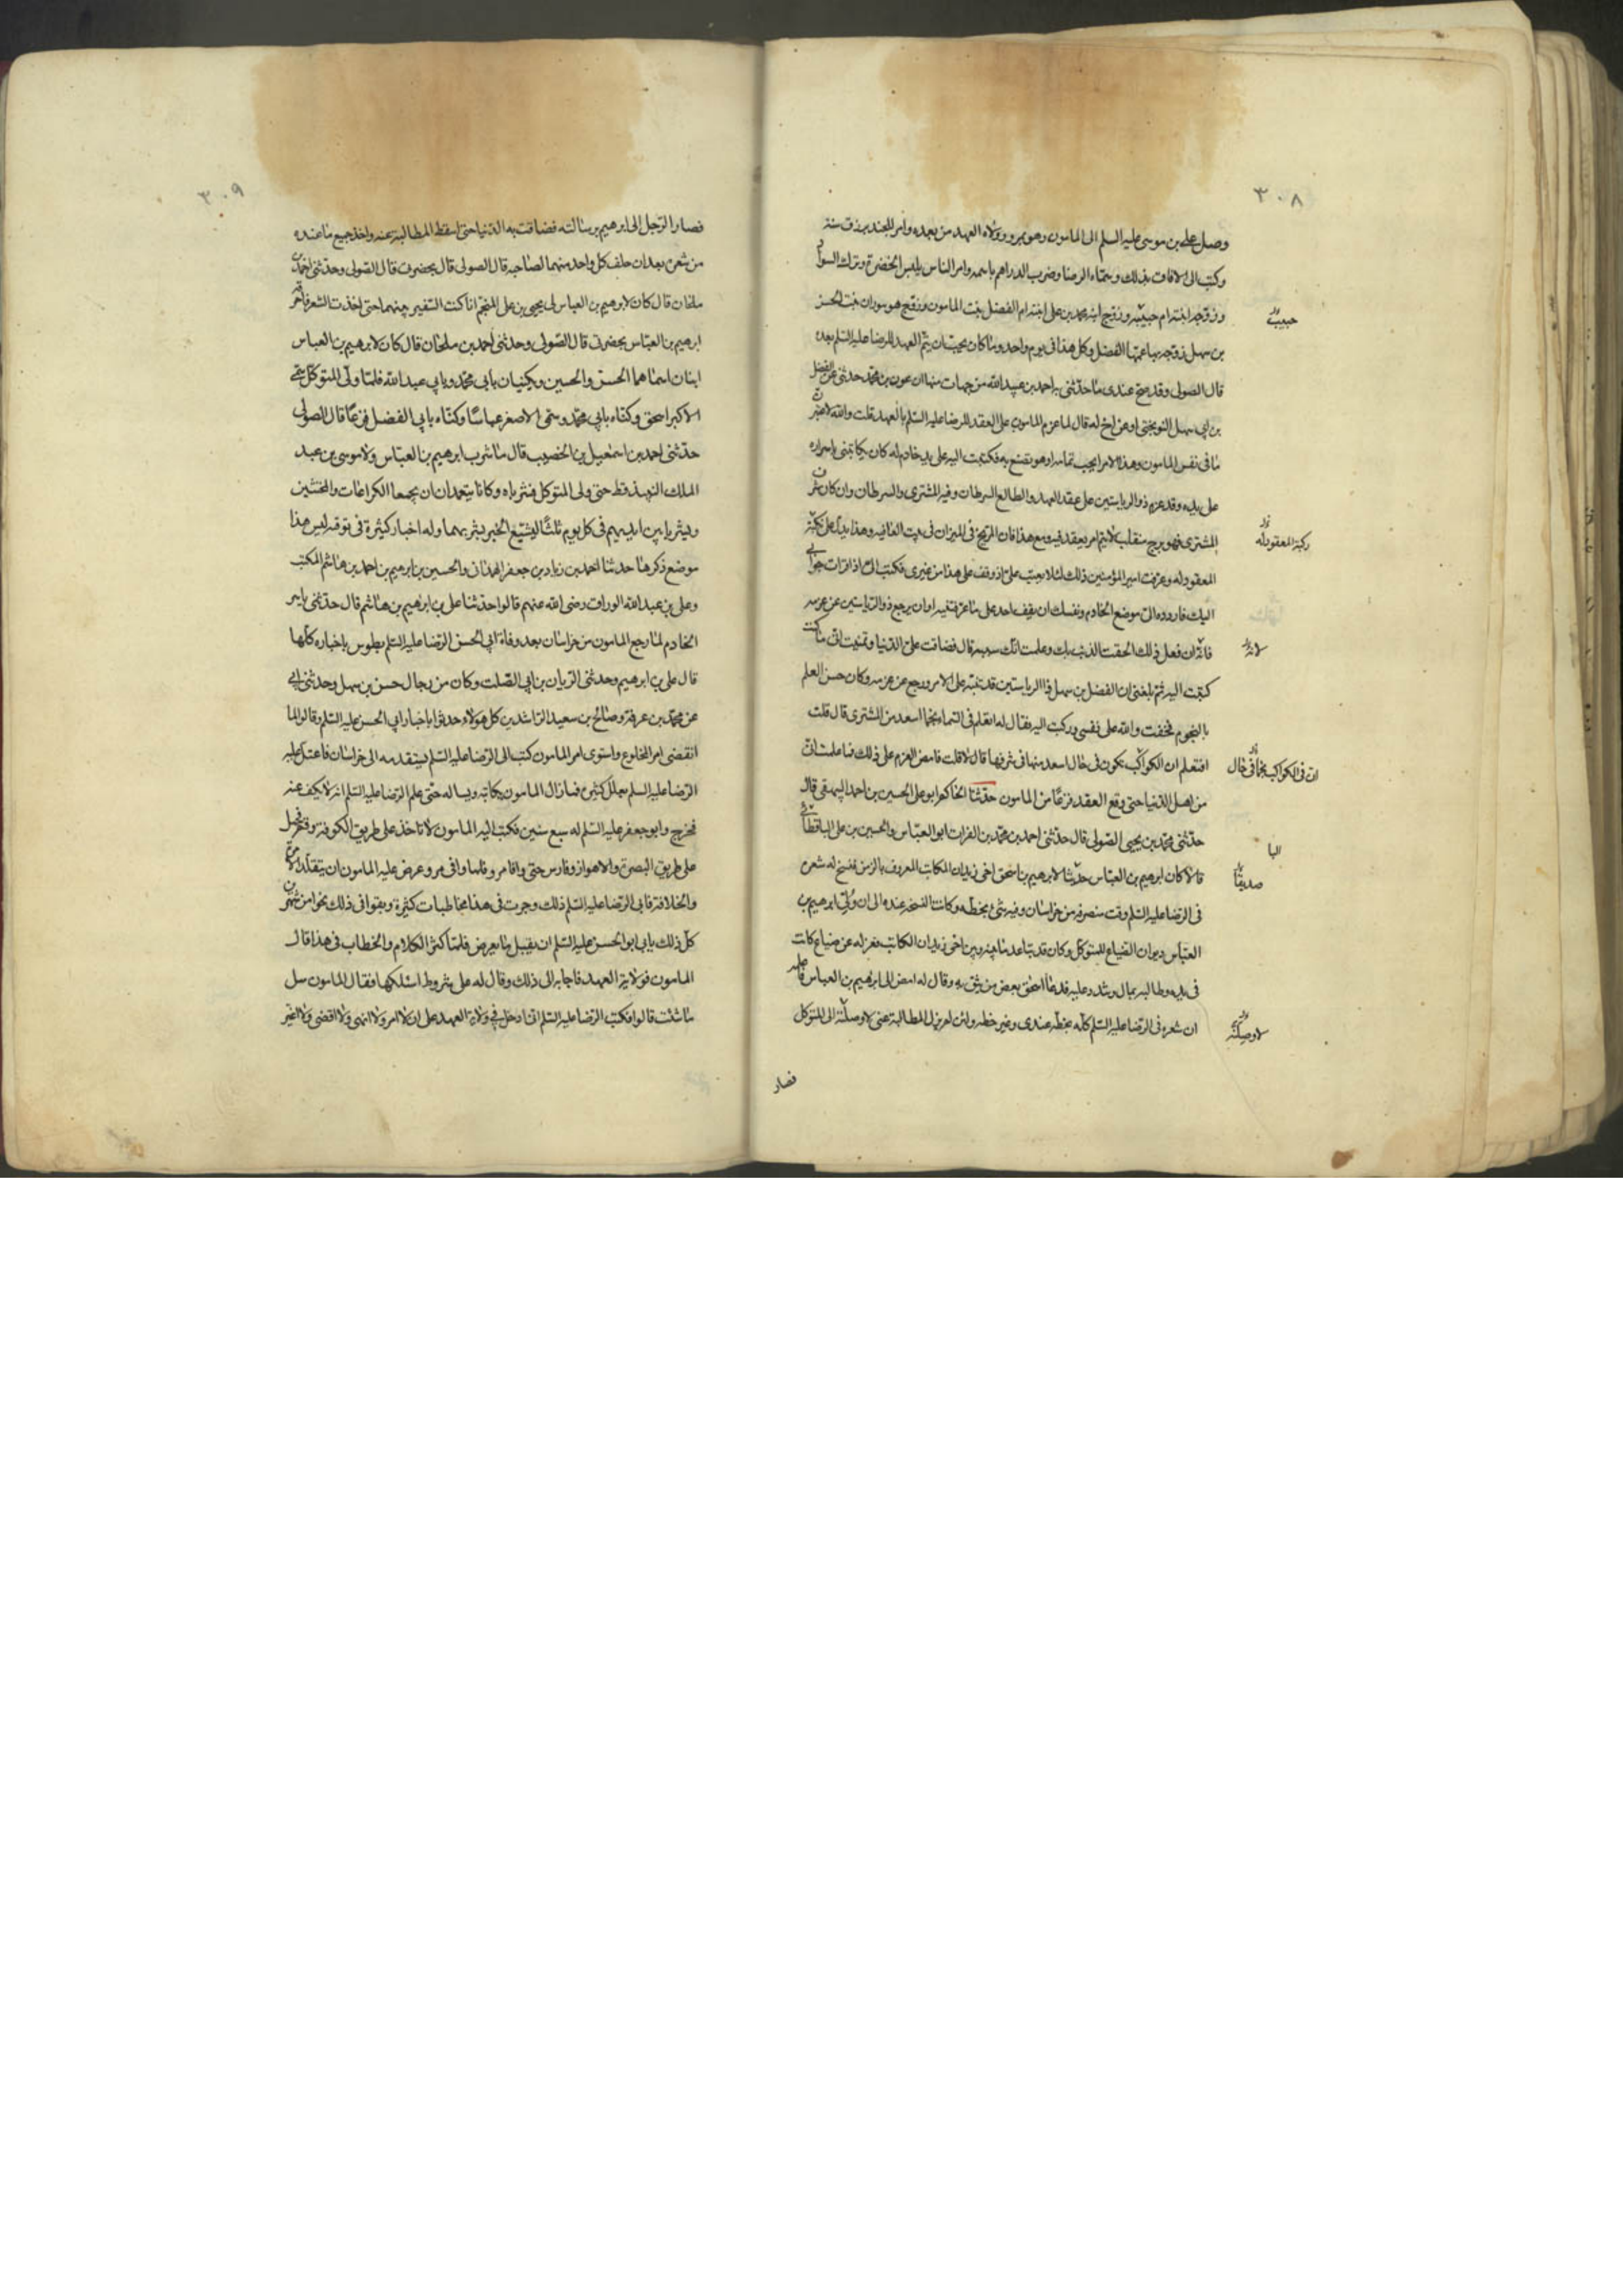 ٣٠٨
وصل علي بن موسى عليه السلم الى المامون وهو بمرو وولاه العهد من بعده وامر للجند برزق سنة
وكتب الى الافاق بذلك وسماه الرضا وضرب الدراهم باسمه وامر الناس بلبس الخضرة وترك السواد
وزوجه ابنته ام حبيبة وزوج ابنه محمد بن علي ابنته ام الفضل بنت المامون وتزوج هو بوران بنت الحسن
بن سهل زوجه بها عمها الفضل وكل هذا في يوم واحد وما كان يحب ان يتم العهد للرضا عليه السلم بعده
قال الصولي وقد صح عندي ما حدثني به احمد بن عبيد الله من جهات منها ان عون بن محمد حدثني عن الفضل
بن ابي سهل النوبختي او عن اخ له قال لما عزم المامون على العقد للرضا عليه السلم بالعهد قلت والله لاعتبرن
ما في نفس المامون وهذا الامر ايحب تمامه او هو تصنع به فكتبت اليه على يد خادم له كان يكاتبني باسراره
على يده وقد عزم ذو الرياستين على عقد العهد والطالع السرطان وفيه المشتري والسرطان وان كان شرف
المشتري فهو برج منقلب لا يتم امر يعقد فيه ومع هذا فان المريخ في الميزان في بيت العاقبه وهذا يدل على نكبة
المعقود له وعرفت امير المؤمنين ذلك لئلا يعتب علي اذ وقف على هذا من غيري فكتب الي اذا قرات جوابي
اليك فاردده الي مع الخادم ونفسك ان يقف احد على ما عرفتنيه او ان يرجع ذو الرياستين عن عزمه
فانه ان فعل ذلك الحقت الذنب بك وعلمت انك سببه قال فضاقت علي الدنيا وتمنيت اني ما كنت
كتبت اليه ثم بلغني ان الفضل بن سهل ذا الرياستين قد تنبه على الامر ورجع عن عزمه وكان حسن العلم
بالنجوم فخفت والله على نفسي وركبت اليه فقال له اتعلم في السماء نجما اسعد من المشتري قال قلت
افتعلم ان الكواكب تكون في حال اسعد منها في شرفها قال لا قلت فامض العزم على ذلك فما علمت ان
من اهل الدنيا حتى وقع العقد فزعا من المامون حدثنا الحاكم ابو علي الحسين بن احمد البيهقي قال
حدثني محمد بن يحيى الصولي قال حدثني احمد بن محمد بن الفرات ابو العباس والحسين بن علي الباقطائي
قالا كان ابرهيم بن العباس صديقا لابرهيم بن اسحق اخي زيدان الكاتب المعروف بالزمن فنسخ له شعره
في الرضا عليه السلم وقت منصرفه من خراسان وفيه شئ بخطه وكانت النسخة عنده الى ان ولي ابرهيم بن
العباس ديوان الضياع للمتوكل وكان قد تباعد ما بينه وبين اخي زيدان الكاتب فعزله عن ضياع كانت
في يده وطالبه بمال وشدد عليه فدعا اسحق بعض من يثق به وقال له امض الى ابرهيم بن العباس فاعلمه
ان شعره في الرضا عليه السلم كله بخطه عندي وغير خطه ولئن لم يزل المطالبة عني لاوصلنه الى المتوكل
فصار
حبيب
نكبة المعقود له
ان في الكواكب نجما في حال
البا
صديقا
لاوصلنه
٣٠٩
فصار الرجل الى ابرهيم برسالته فضاقت به الدنيا حتى اسقط المطالبة عنه واخذ جميع ما عنده
من شعره بعد ان حلف كل واحد منهما لصاحبه قال الصولي قال بحضرتي قال الصولي وحدثني احمد بن
ملحان قال كان لابرهيم بن العباس لي يحيى بن علي المنجم انا كنت السفير بينهما حتى اخذت الشعر فاحرقه
ابرهيم بن العباس بحضرتي قال الصولي وحدثني احمد بن ملحان قال كان لابرهيم بن العباس
ابنان اسماهما الحسن والحسين ويكنيان بابي محمد وبابي عبد الله فلما ولي المتوكل سمى
الاكبر اسحق وكناه بابي محمد وسمى الاصغر عباسا وكناه بابي الفضل فزعا قال الصولي
حدثني احمد بن اسمعيل بن الخضيب قال ما شرب ابرهيم بن العباس ولا موسى بن عبد
الملك النبيذ قط حتى ولي المتوكل فشرباه وكانا يتعمدان ان يجمعا الكراعات والمخنثين
ويشربا بين ايديهم في كل يوم ثلثا ليشيع الخبر بشربهما وله اخبار كثيرة في توقيه ليس هذا
موضع ذكرها حدثنا احمد بن زياد بن جعفر الهمذاني والحسين بن ابرهيم بن احمد بن هاشم المكتب
وعلي بن عبد الله الوراق رضي الله عنهم قالوا حدثنا علي بن ابرهيم بن هاشم قال حدثني ياسر
الخادم لما رجع المامون من خراسان بعد وفاة ابي الحسن الرضا عليه السلم بطوس باخباره كلها
قال علي بن ابرهيم وحدثني الريان بن ابي الصلت وكان من رجال حسن بن سهل وحدثني ابي
عن محمد بن عرفة وصالح بن سعيد الراشدين كل هؤلاء حدثوا باخبار ابي الحسن عليه السلم وقالوا لما
انقضى امر المخلوع واستوى امر المامون كتب الى الرضا عليه السلم يستقدمه الى خراسان فاعتل عليه
الرضا عليه السلم بعلل كثيرة فما زال المامون يكاتبه ويساله حتى علم الرضا عليه السلم انه لا يكف عنه
فخرج وابو جعفر عليه السلم له سبع سنين فكتب اليه المامون لا تاخذ على طريق الكوفة وقم فحمل
على طريق البصرة والاهواز وفارس حتى وافا مرو فلما وافى مرو عرض عليه المامون ان يتقلد الامرة
والخلافة فابى الرضا عليه السلم ذلك وجرت في هذا مخاطبات كثيرة وبقوا في ذلك نحوا من شهرين
كل ذلك يابى ابو الحسن عليه السلم ان يقبل ما يعرض فلما كثر الكلام والخطاب في هذا قال
المامون فولاية العهد فاجابه الى ذلك وقال له على شروط اسئلكها فقال المامون سل
ما شئت قالوا فكتب الرضا عليه السلم اني ادخل في ولاية العهد على ان لا امر ولا انهى ولا اقضي ولا اغير